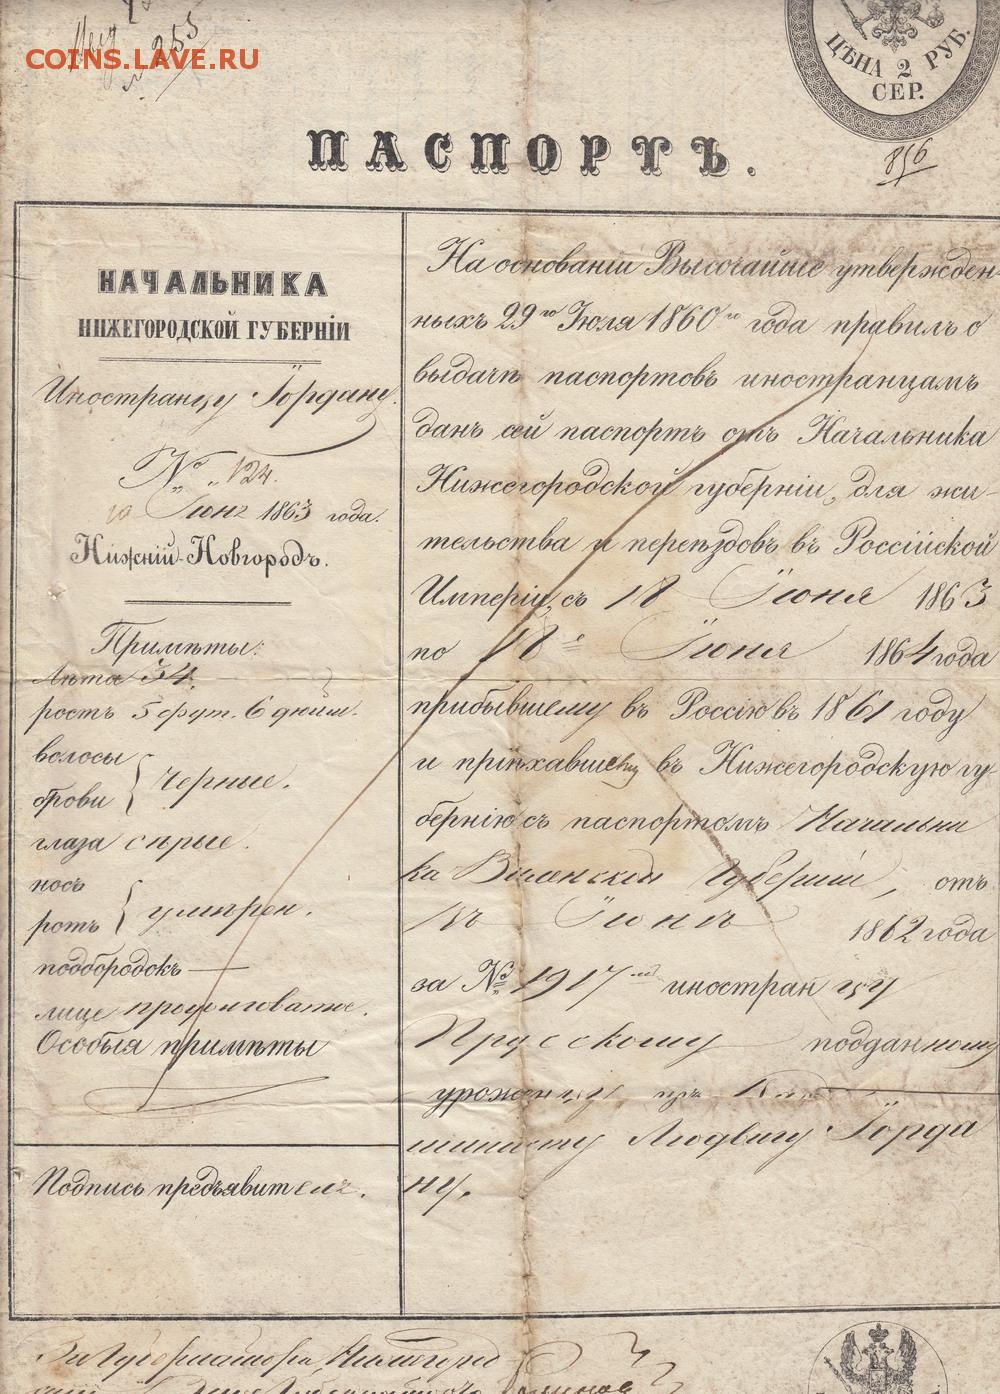 COINS.LAVE.RU
№ 255
ЦѢНА 2 РУБ.
СЕР.
856
ПАСПОРТЪ.
НАЧАЛЬНИКА
НИЖЕГОРОДСКОЙ ГУБЕРНІИ
Иностранцу Іордану.
№ 124.
Іюня 1863 года.
Нижній-Новгородъ.
Примѣты:
Лѣта 34.
ростъ 5 фут. 6 дюйм.
волосы
брови } черные.
глаза сѣрые.
носъ
ротъ } умѣрен.
подбородокъ —
лице продолговатое.
Особыя примѣты
Подпись предъявителя.
На основаніи Высочайше утвержден-
ныхъ 29го Іюля 1860го года правилъ о
выдачѣ паспортовъ иностранцамъ
данъ сей паспортъ отъ Начальника
Нижегородской губерніи, для жи-
тельства и переѣздовъ въ Россійской
Имперіи, съ 18 Іюня 1863
по 18е Іюня 1864 года
прибывшему въ Россію въ 1861 году
и пріѣхавшему въ Нижегородскую гу-
бернію съ паспортомъ Начальни
ка Виленской Губерніи, отъ
Іюня 1862 года
за № 1917 иностранцу
Прусскому подданному
уроженцу
шинисту Людвигу Іорда
ну.
За Губернатора, Нижегород